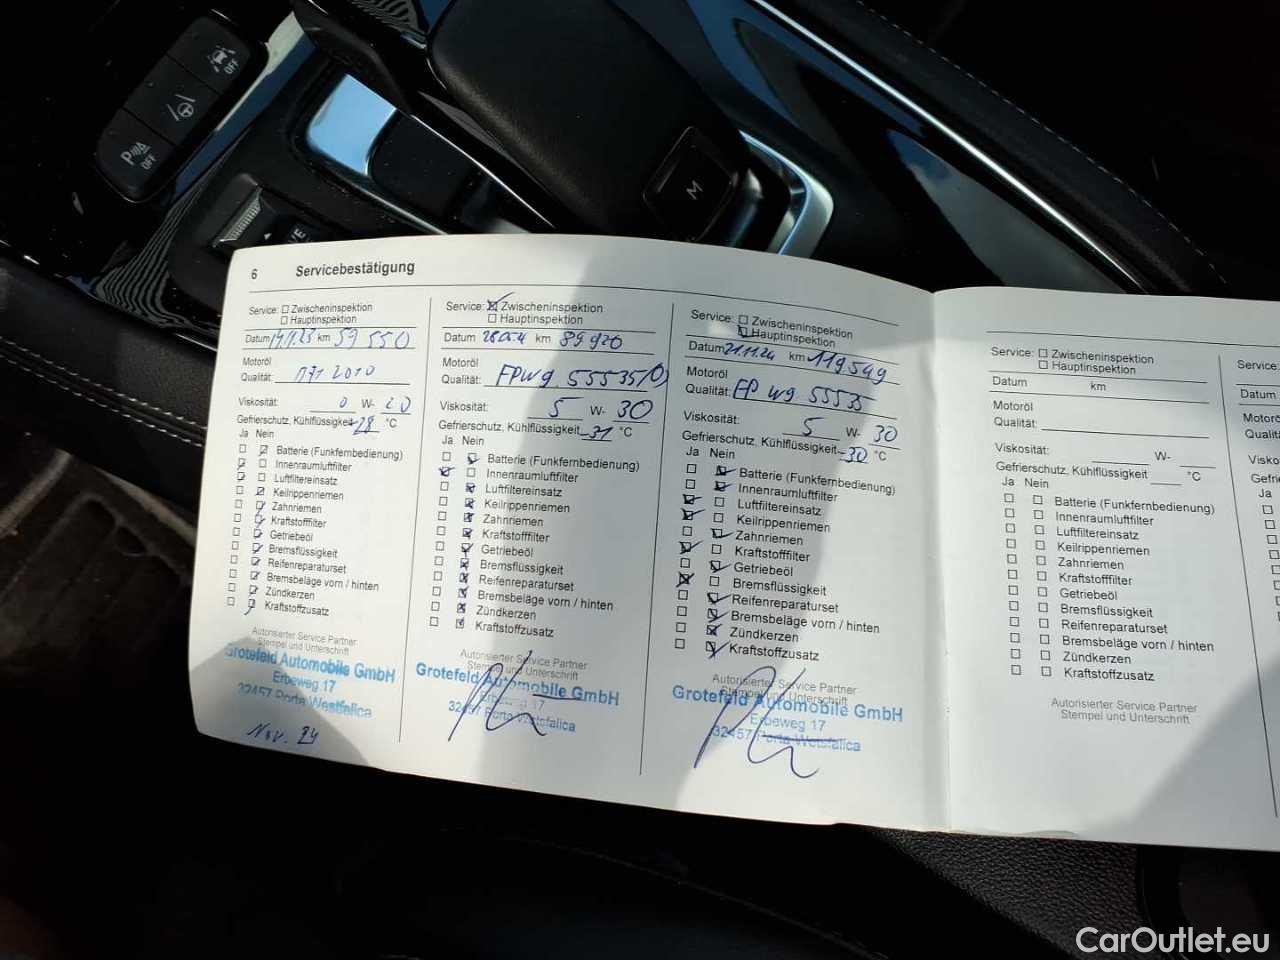 OFF
OFF
M
6 Servicebestätigung
Service: Zwischeninspektion
Hauptinspektion
Datum km 59 550
Motoröl
Qualität: 2010
Viskosität: 0 W- 20
Gefrierschutz, Kühlflüssigkeit -28 °C
Ja Nein
Batterie (Funkfernbedienung)
Innenraumluftfilter
Luftfiltereinsatz
Keilrippenriemen
Zahnriemen
Kraftstofffilter
Getriebeöl
Bremsflüssigkeit
Reifenreparaturset
Bremsbeläge vorn / hinten
Zündkerzen
Kraftstoffzusatz
Autorisierter Service Partner
Stempel und Unterschrift
Grotefeld Automobile GmbH
Erbeweg 17
32457 Porta Westfalica
Nov. 24
Service: Zwischeninspektion
Hauptinspektion
Datum km 89 920
Motoröl
Qualität:
Viskosität: 5 W- 30
Gefrierschutz, Kühlflüssigkeit -31 °C
Ja Nein
Batterie (Funkfernbedienung)
Innenraumluftfilter
Luftfiltereinsatz
Keilrippenriemen
Zahnriemen
Kraftstofffilter
Getriebeöl
Bremsflüssigkeit
Reifenreparaturset
Bremsbeläge vorn / hinten
Zündkerzen
Kraftstoffzusatz
Autorisierter Service Partner
Stempel und Unterschrift
Grotefeld Automobile GmbH
Erbeweg 17
32457 Porta Westfalica
Service: Zwischeninspektion
Hauptinspektion
Datum 21.11.24 km 119549
Motoröl
Qualität: 55535
Viskosität: 5 W- 30
Gefrierschutz, Kühlflüssigkeit -30 °C
Ja Nein
Batterie (Funkfernbedienung)
Innenraumluftfilter
Luftfiltereinsatz
Keilrippenriemen
Zahnriemen
Kraftstofffilter
Getriebeöl
Bremsflüssigkeit
Reifenreparaturset
Bremsbeläge vorn / hinten
Zündkerzen
Kraftstoffzusatz
Autorisierter Service Partner
Stempel und Unterschrift
Grotefeld Automobile GmbH
Erbeweg 17
32457 Porta Westfalica
Service: Zwischeninspektion
Hauptinspektion
Datum km
Motoröl
Qualität:
Viskosität: W-
Gefrierschutz, Kühlflüssigkeit °C
Ja Nein
Batterie (Funkfernbedienung)
Innenraumluftfilter
Luftfiltereinsatz
Keilrippenriemen
Zahnriemen
Kraftstofffilter
Getriebeöl
Bremsflüssigkeit
Reifenreparaturset
Bremsbeläge vorn / hinten
Zündkerzen
Kraftstoffzusatz
Autorisierter Service Partner
Stempel und Unterschrift
Service:
Datum
Motoröl
Ja
CarOutlet.eu